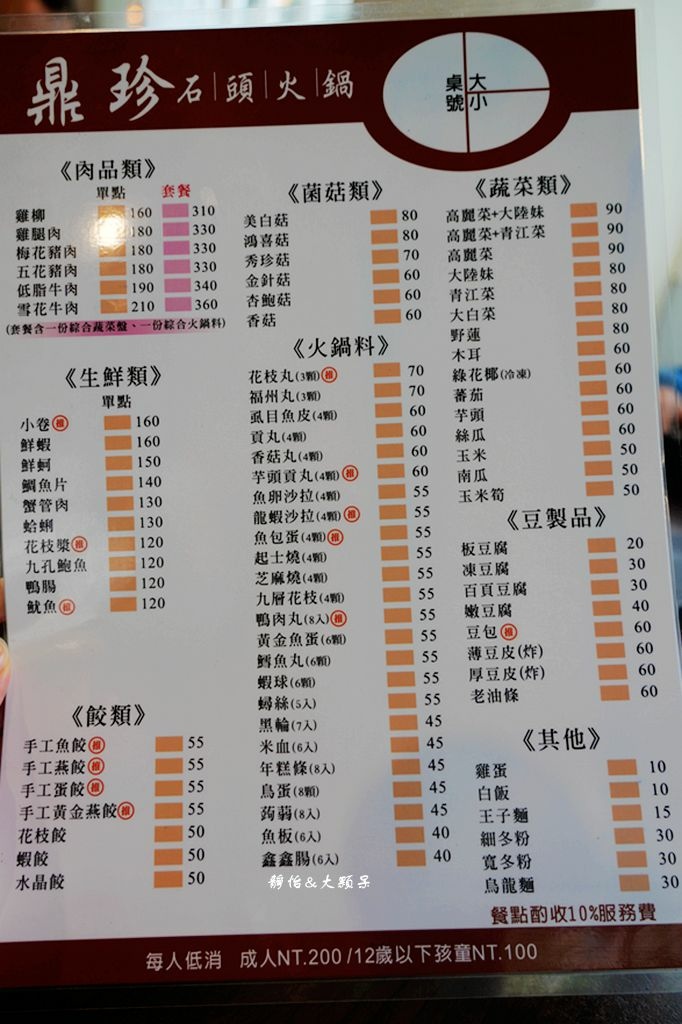 鼎珍石頭火鍋
桌號 大 小
《肉品類》
單點 套餐
雞柳 160 310
雞腿肉 180 330
梅花豬肉 180 330
五花豬肉 180 330
低脂牛肉 190 340
雪花牛肉 210 360
(套餐含一份綜合蔬菜盤、一份綜合火鍋料)
《生鮮類》
單點
小卷推 160
鮮蝦 160
鮮蚵 150
鯛魚片 140
蟹管肉 130
蛤蜊 130
花枝漿推 120
九孔鮑魚 120
鴨腸 120
魷魚推 120
《餃類》
手工魚餃推 55
手工燕餃推 55
手工蛋餃推 55
手工黃金燕餃推 55
花枝餃 50
蝦餃 50
水晶餃 50
《菌菇類》
美白菇 80
鴻喜菇 80
秀珍菇 70
金針菇 60
杏鮑菇 60
香菇 60
《火鍋料》
花枝丸(3顆)推 70
福州丸(3顆) 70
虱目魚皮(4顆) 60
貢丸(4顆) 60
香菇丸(4顆) 60
芋頭貢丸(4顆)推 60
魚卵沙拉(4顆) 55
龍蝦沙拉(4顆)推 55
魚包蛋(4顆)推 55
起士燒(4顆) 55
芝麻燒(4顆) 55
九層花枝(4顆) 55
鴨肉丸(8入)推 55
黃金魚蛋(6顆) 55
鱈魚丸(6顆) 55
蝦球(6顆) 55
蟳絲(5入) 55
黑輪(7入) 45
米血(6入) 45
年糕條(8入) 45
鳥蛋(8顆) 45
蒟蒻(8入) 45
魚板(6入) 40
鑫鑫腸(6入) 40
《蔬菜類》
高麗菜+大陸妹 90
高麗菜+青江菜 90
高麗菜 90
大陸妹 80
青江菜 80
大白菜 80
野蓮 80
木耳 60
綠花椰(冷凍) 60
蕃茄 60
芋頭 60
絲瓜 60
玉米 50
南瓜 50
玉米筍 50
《豆製品》
板豆腐 20
凍豆腐 30
百頁豆腐 30
嫩豆腐 40
豆包推 60
薄豆皮(炸) 60
厚豆皮(炸) 60
老油條 60
《其他》
雞蛋 10
白飯 10
王子麵 15
細冬粉 30
寬冬粉 30
烏龍麵 30
餐點酌收10%服務費
靜怡&大顆呆
每人低消 成人NT.200/12歲以下孩童NT.100